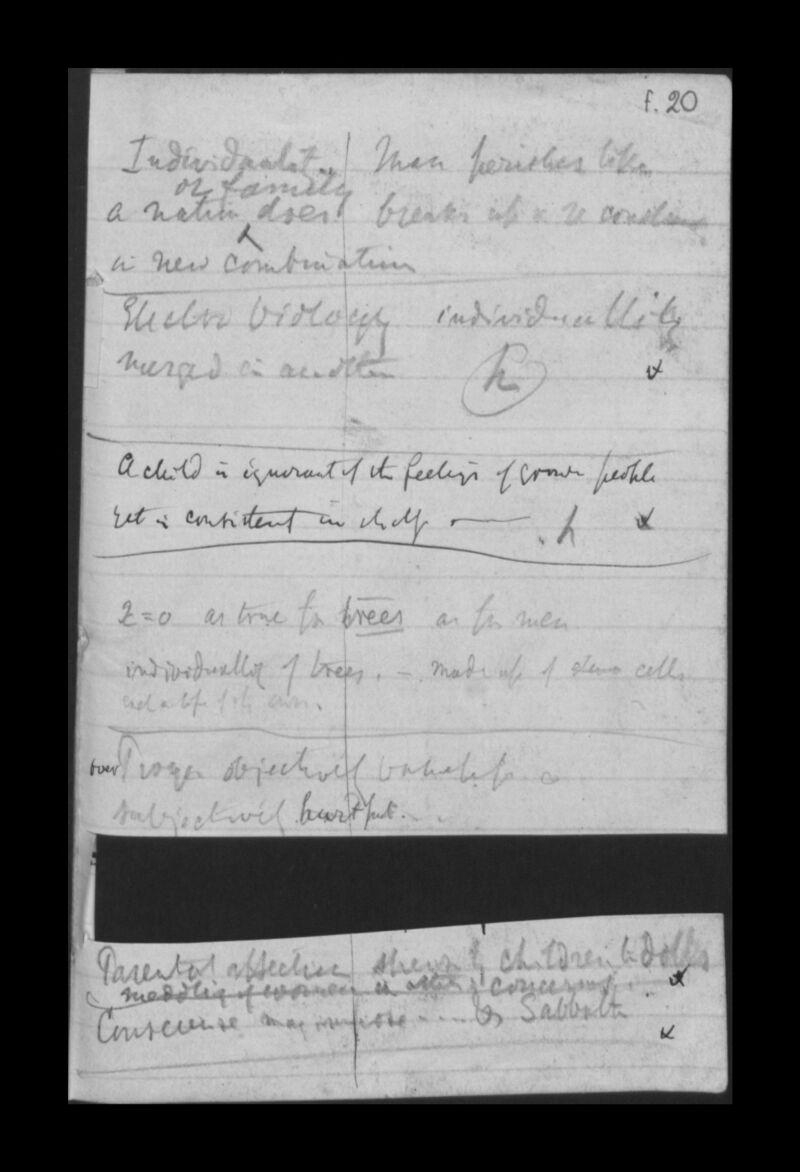 f. 20
Individualit.. Man perishes like
or family
a nation does breaks up &
in new combination
Electro biology individuallity
merged in another h
A child is ignorant of the feelings of grown people
yet is consistent in itself — . h
2=0 as true for trees as for men
individuallity of trees. — made up of cells
each a life of its own.
over Prayer objectively
subjectively hurtful.
Parental affection shewn by children to dolls
meddling of women in other concerns.
Conscience may impose Sabbath